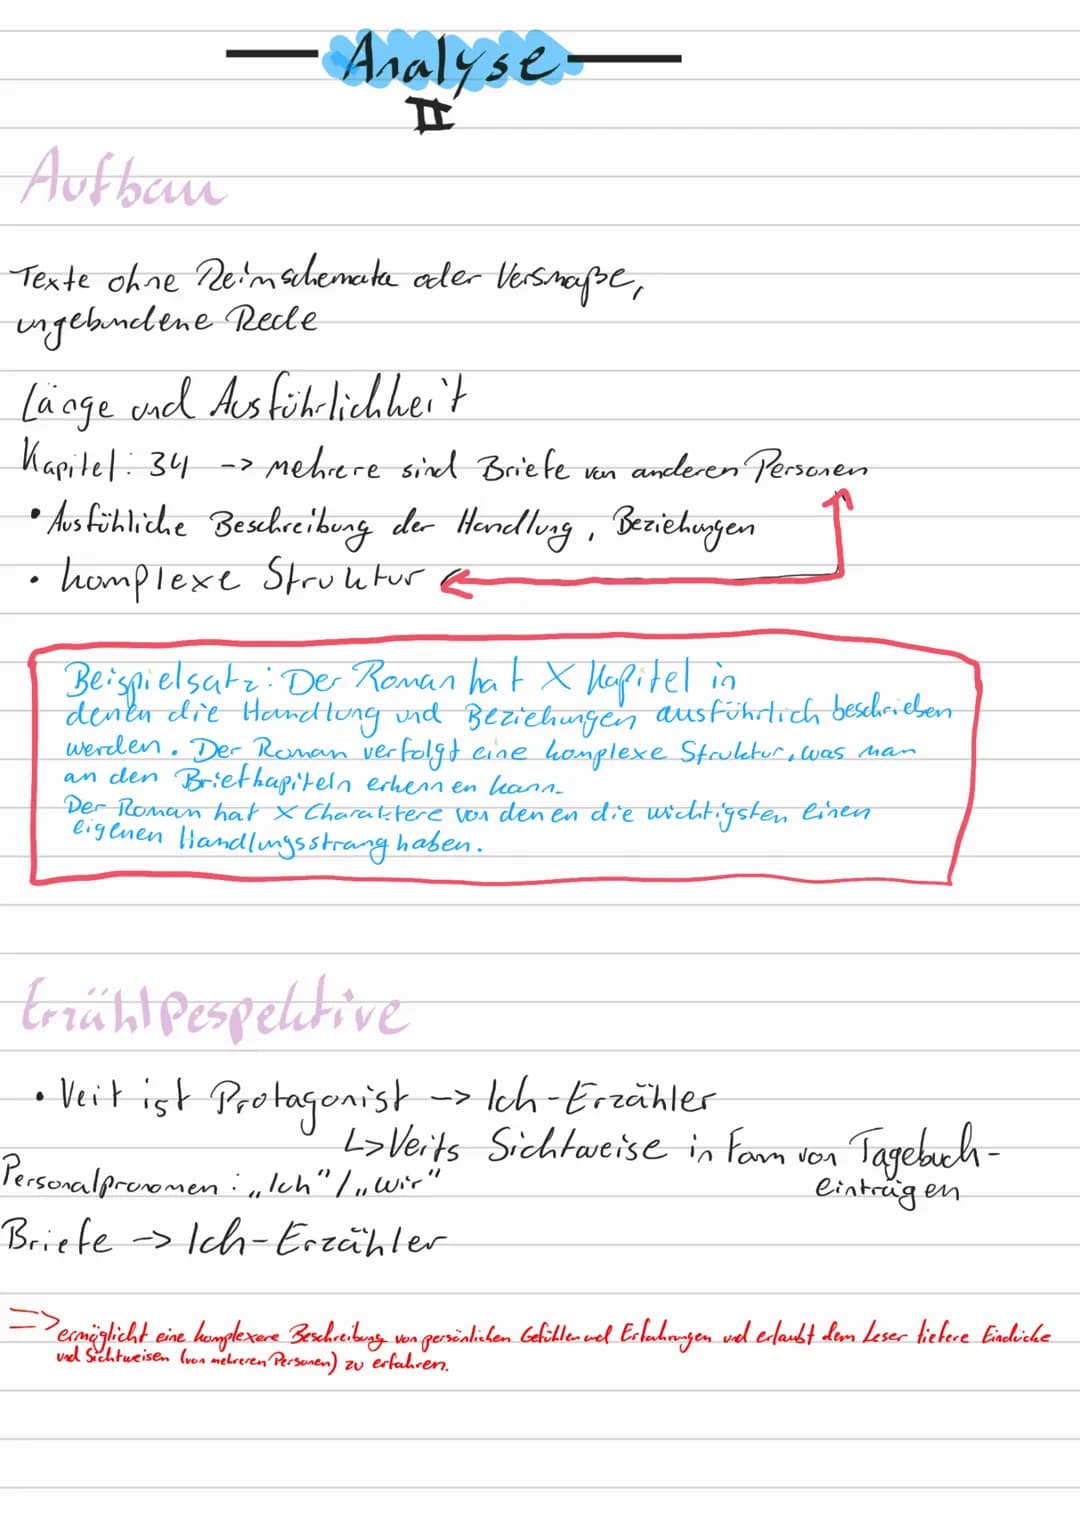 Analyse
II
Aufbau
Texte ohne Reimschemata oder Versmaße,
ungebundene Rede
Länge und Ausführlichkeit
Kapitel: 34 -> mehrere sind Briefe von anderen Personen
• Ausfühliche Beschreibung der Handlung, Beziehungen
• komplexe Struktur
Beispielsatz: Der Roman hat X Kapitel in
denen die Handlung und Beziehungen ausführlich beschrieben
werden. Der Roman verfolgt eine komplexe Struktur, was man
an den Briefkapiteln erkennen kann.
Der Roman hat X Charaktere von denen die wichtigsten einen
eigenen Handlungsstrang haben.
Erzählpespektive
• Veit ist Protagonist -> Ich-Erzähler
↳> Veits Sichtweise in Form von Tagebuch-
einträgen
Personalpronomen: „Ich"/„wir"
Briefe -> Ich-Erzähler
=> ermöglicht eine komplexere Beschreibung von persönlichen Gefühlen und Erfahrungen und erlaubt dem Leser tiefere Eindrücke
und Sichtweisen (von mehreren Personen) zu erfahren.